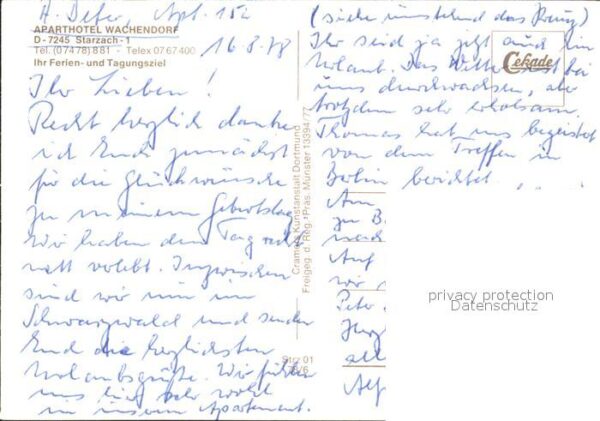 Apt. 152
APARTHOTEL WACHENDORF
D - 7245 Starzach - 1
Tel. (07478) 881 · Telex 0767400
16.8.78
Ihr Ferien- und Tagungsziel
Ihr Lieben!
Recht herzlich danke
ich Euch zunächst
für die Glückwünsche
zu meinem Geburtstag
Wir haben den Tag recht
nett verlebt. Inzwischen
sind wir nun im
Schwarzwald und senden
Euch die herzlichsten
Urlaubsgrüße. Wir fühlen
uns hier sehr wohl
in unserem Apartement.
Cramers Kunstanstalt Dortmund
Freigeg. d. Reg.-Präs. Münster 13394/77
Stz 01
(siehe umstehend das Kreuz)
Ihr seid ja jetzt auch im
Urlaub. Das Wetter ist bei
uns durchwachsen, aber
trotzdem sehr erholsam.
Thomas hat uns begeistert
von dem Treffen in
Berlin berichtet
Cekade
Am
zu B
nach
Auf
wir
Peter
Herz
all
privacy protection
Datenschutz